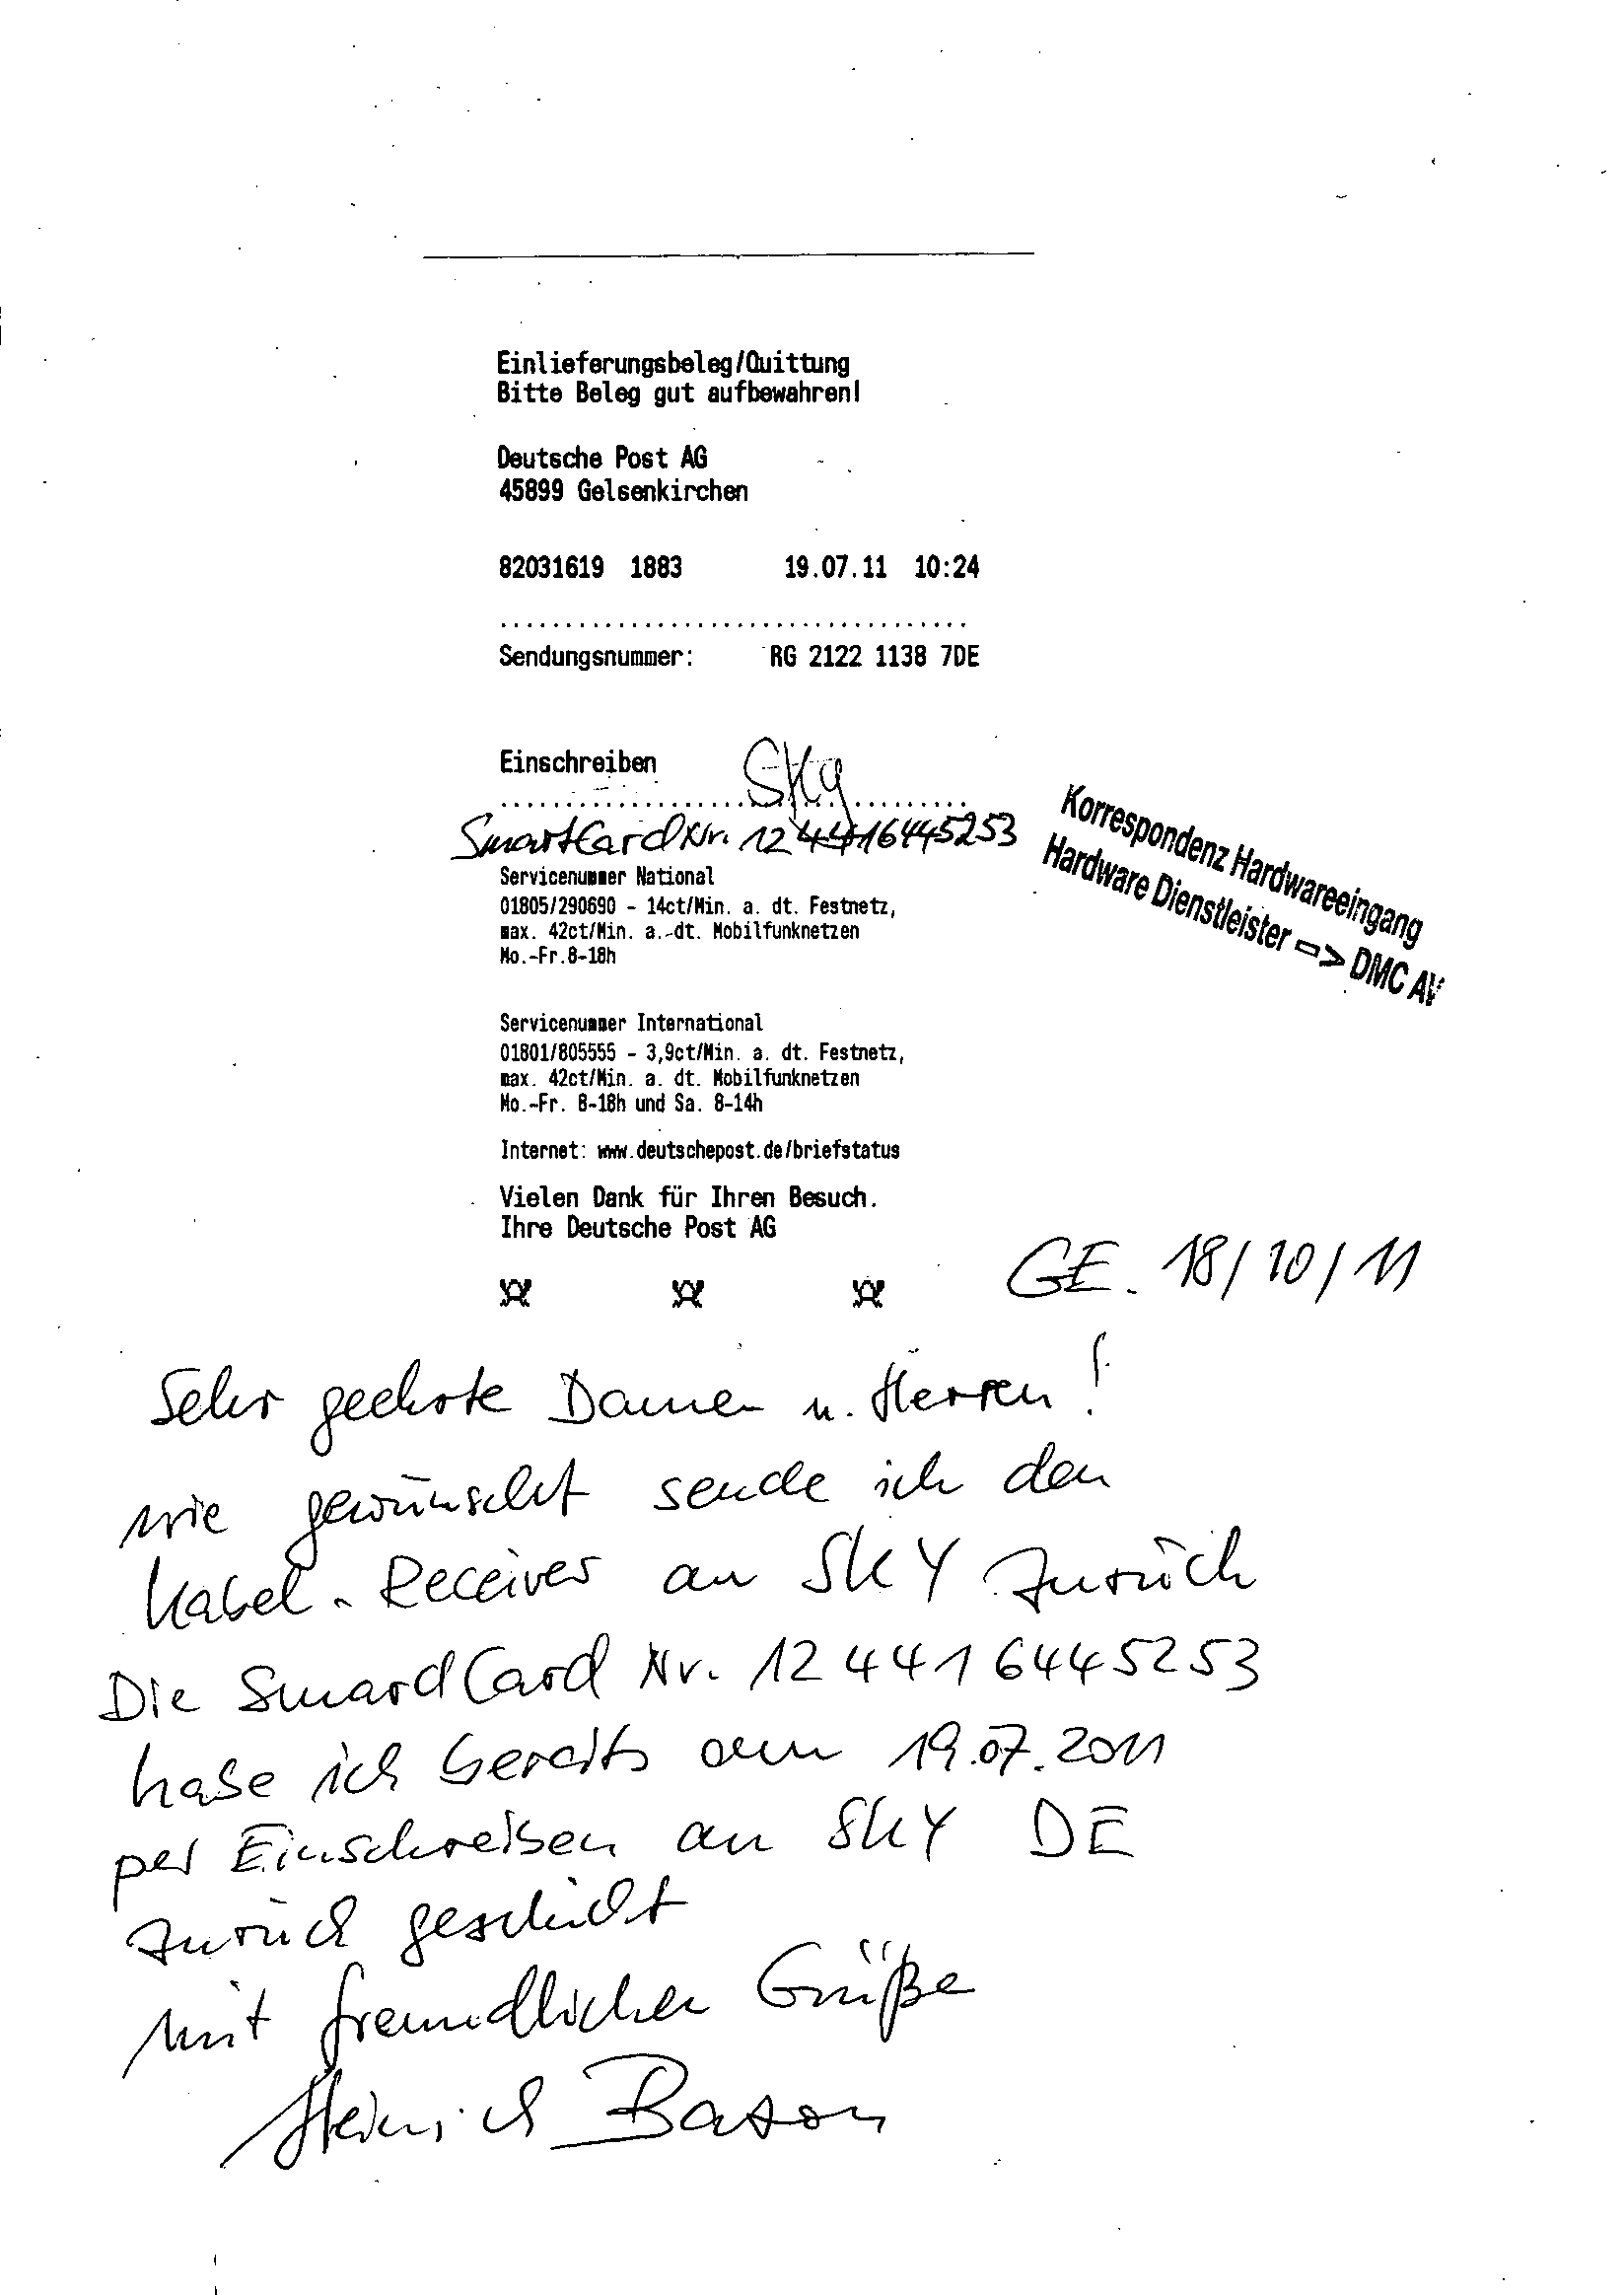 Einlieferungsbeleg/Quittung
Bitte Beleg gut aufbewahren!
Deutsche Post AG
45899 Gelsenkirchen
82031619 1883 19.07.11 10:24
....................................
Sendungsnummer: RG 2122 1138 7DE
Einschreiben Sky
....................................
SmartCard Nr. 12441 6445253
Servicenummer National
01805/290690 - 14ct/Min. a. dt. Festnetz,
max. 42ct/Min. a. dt. Mobilfunknetzen
Mo.-Fr.8-18h
Korrespondenz Hardwareeingang
Hardware Dienstleister => DMC AV
Servicenummer International
01801/805555 - 3,9ct/Min. a. dt. Festnetz,
max. 42ct/Min. a. dt. Mobilfunknetzen
Mo.-Fr. 8-18h und Sa. 8-14h
Internet: www.deutschepost.de/briefstatus
Vielen Dank für Ihren Besuch.
Ihre Deutsche Post AG
GE. 18/10/11
Sehr geehrte Damen u. Herren!
wie gewünscht sende ich den
Kabel-Receiver an SKY zurück
Die SmardCard Nr. 12 441 6445253
habe ich bereits am 19.07.2011
per Einschreiben an SKY DE
zurück geschickt
mit freundlichen Grüße
Heinrich Bason